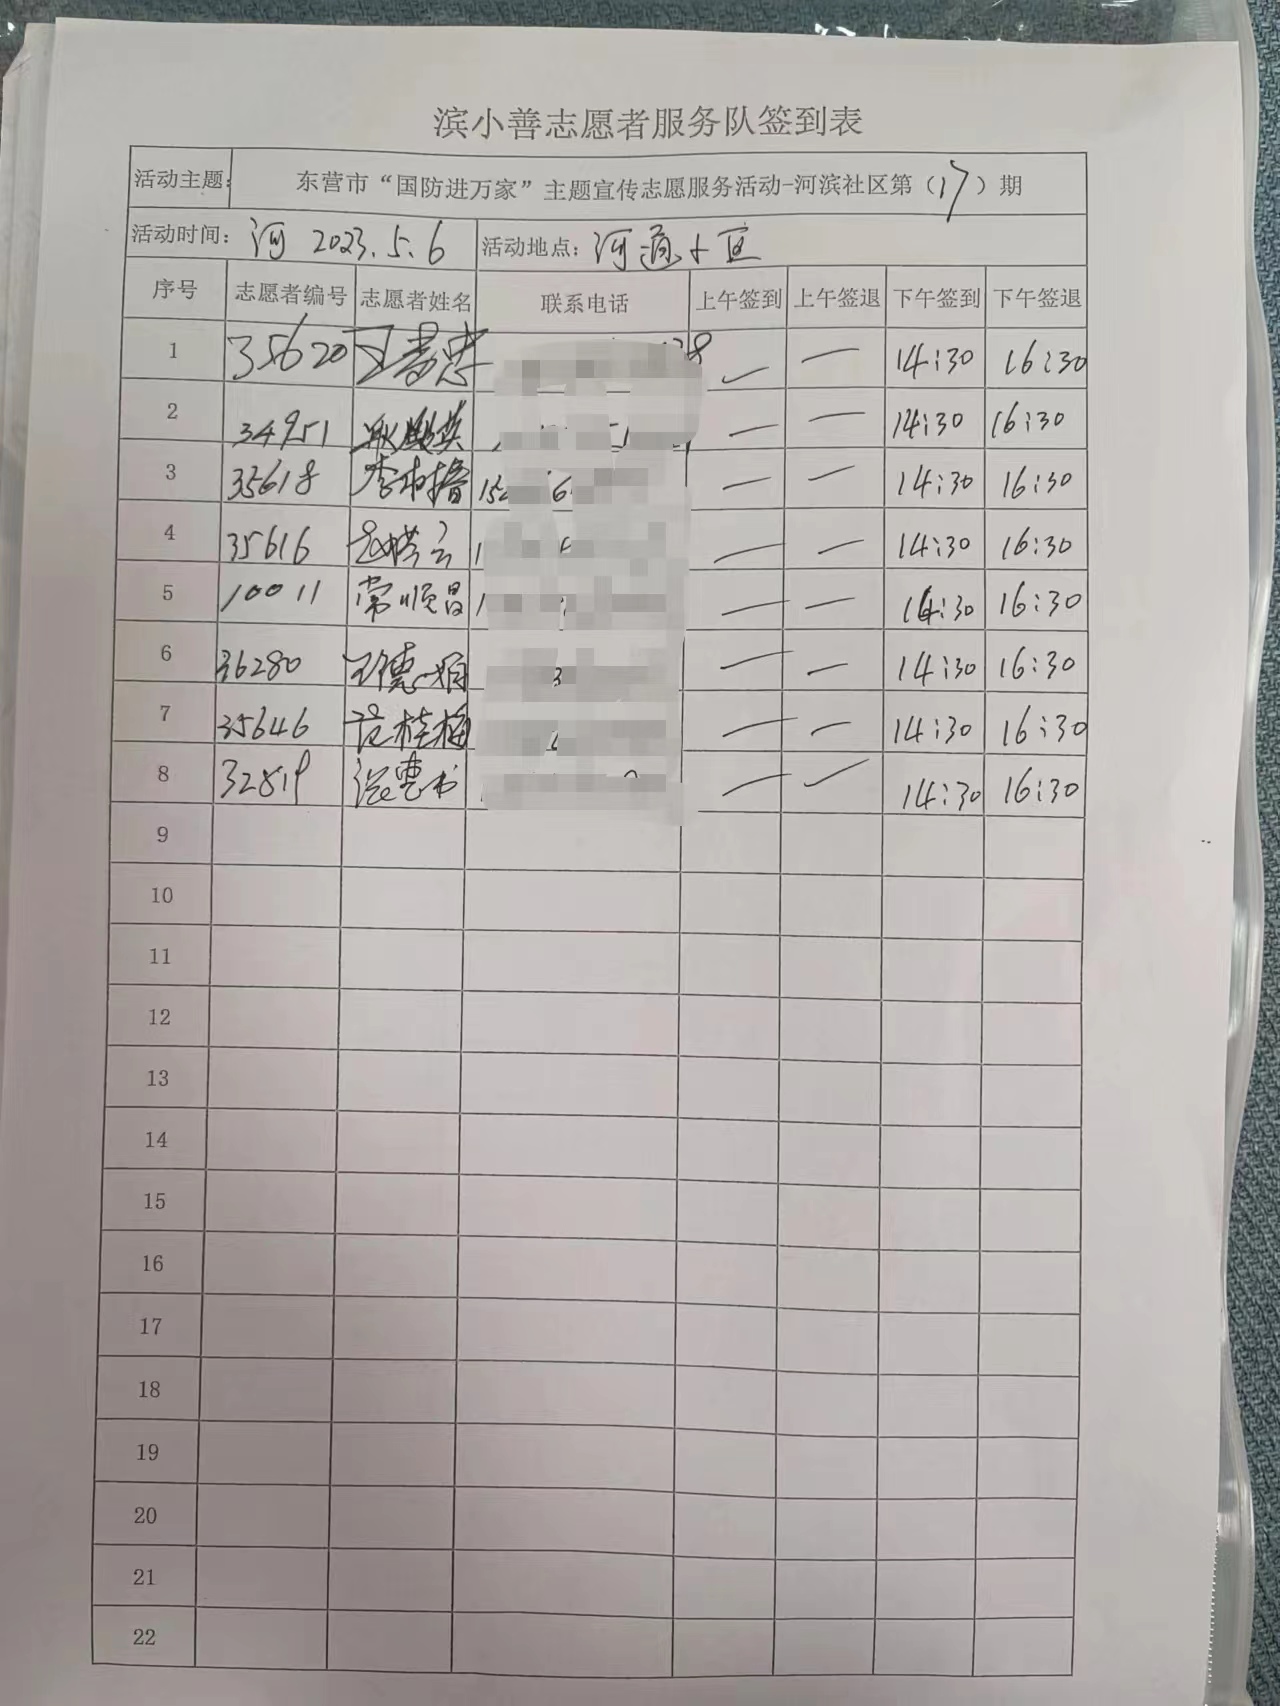 滨小善志愿者服务队签到表
活动主题: 东营市“国防进万家”主题宣传志愿服务活动-河滨社区第（17）期
活动时间: 河 2023.5.6 活动地点: 河通小区
序号 志愿者编号 志愿者姓名 联系电话 上午签到 上午签退 下午签到 下午签退
1 35620 — 14:30 16:30
2 34951 — — 14:30 16:30
3 35618 李 — — 14:30 16:30
4 35616 — — 14:30 16:30
5 10011 常顺昌 — — 14:30 16:30
6 36280 王德娟 — — 14:30 16:30
7 35646 范桂梅 — — 14:30 16:30
8 32819 — 14:30 16:30
9
10
11
12
13
14
15
16
17
18
19
20
21
22